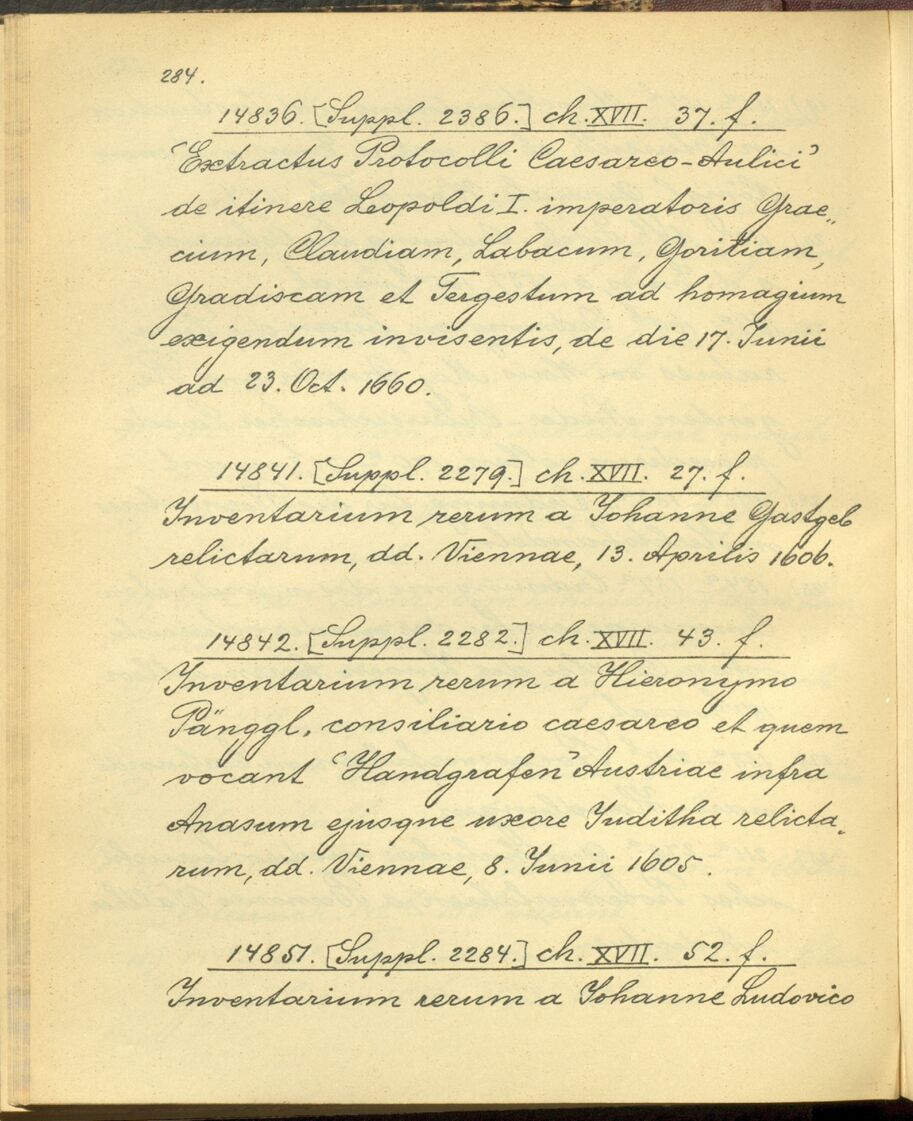 284.
14836. [Suppl. 2386.] ch. XVII. 37. f.
"Extractus Protocolli Caesareo-Aulici"
de itinere Leopoldi I. imperatoris Grae„
cium, Claudiam, Labacum, Goritiam,
Gradiscam et Tergestum ad homagium
exigendum invisentis, de die 17. Junii
ad 23. Oct. 1660.
14841. [Suppl. 2279.] ch. XVII. 27. f.
Inventarium rerum a Johanne Gastgeb
relictarum, dd. Viennae, 13. Aprilis 1606.
14842. [Suppl. 2282.] ch. XVII. 43. f.
Inventarium rerum a Hieronymo
Pänggl, consiliario caesareo et quem
vocant "Handgrafen" Austriae infra
Anasum ejusque uxore Juditha relicta„
rum, dd. Viennae, 8. Junii 1605.
14851. [Suppl. 2284.] ch. XVII. 52. f.
Inventarium rerum a Johanne Ludovico